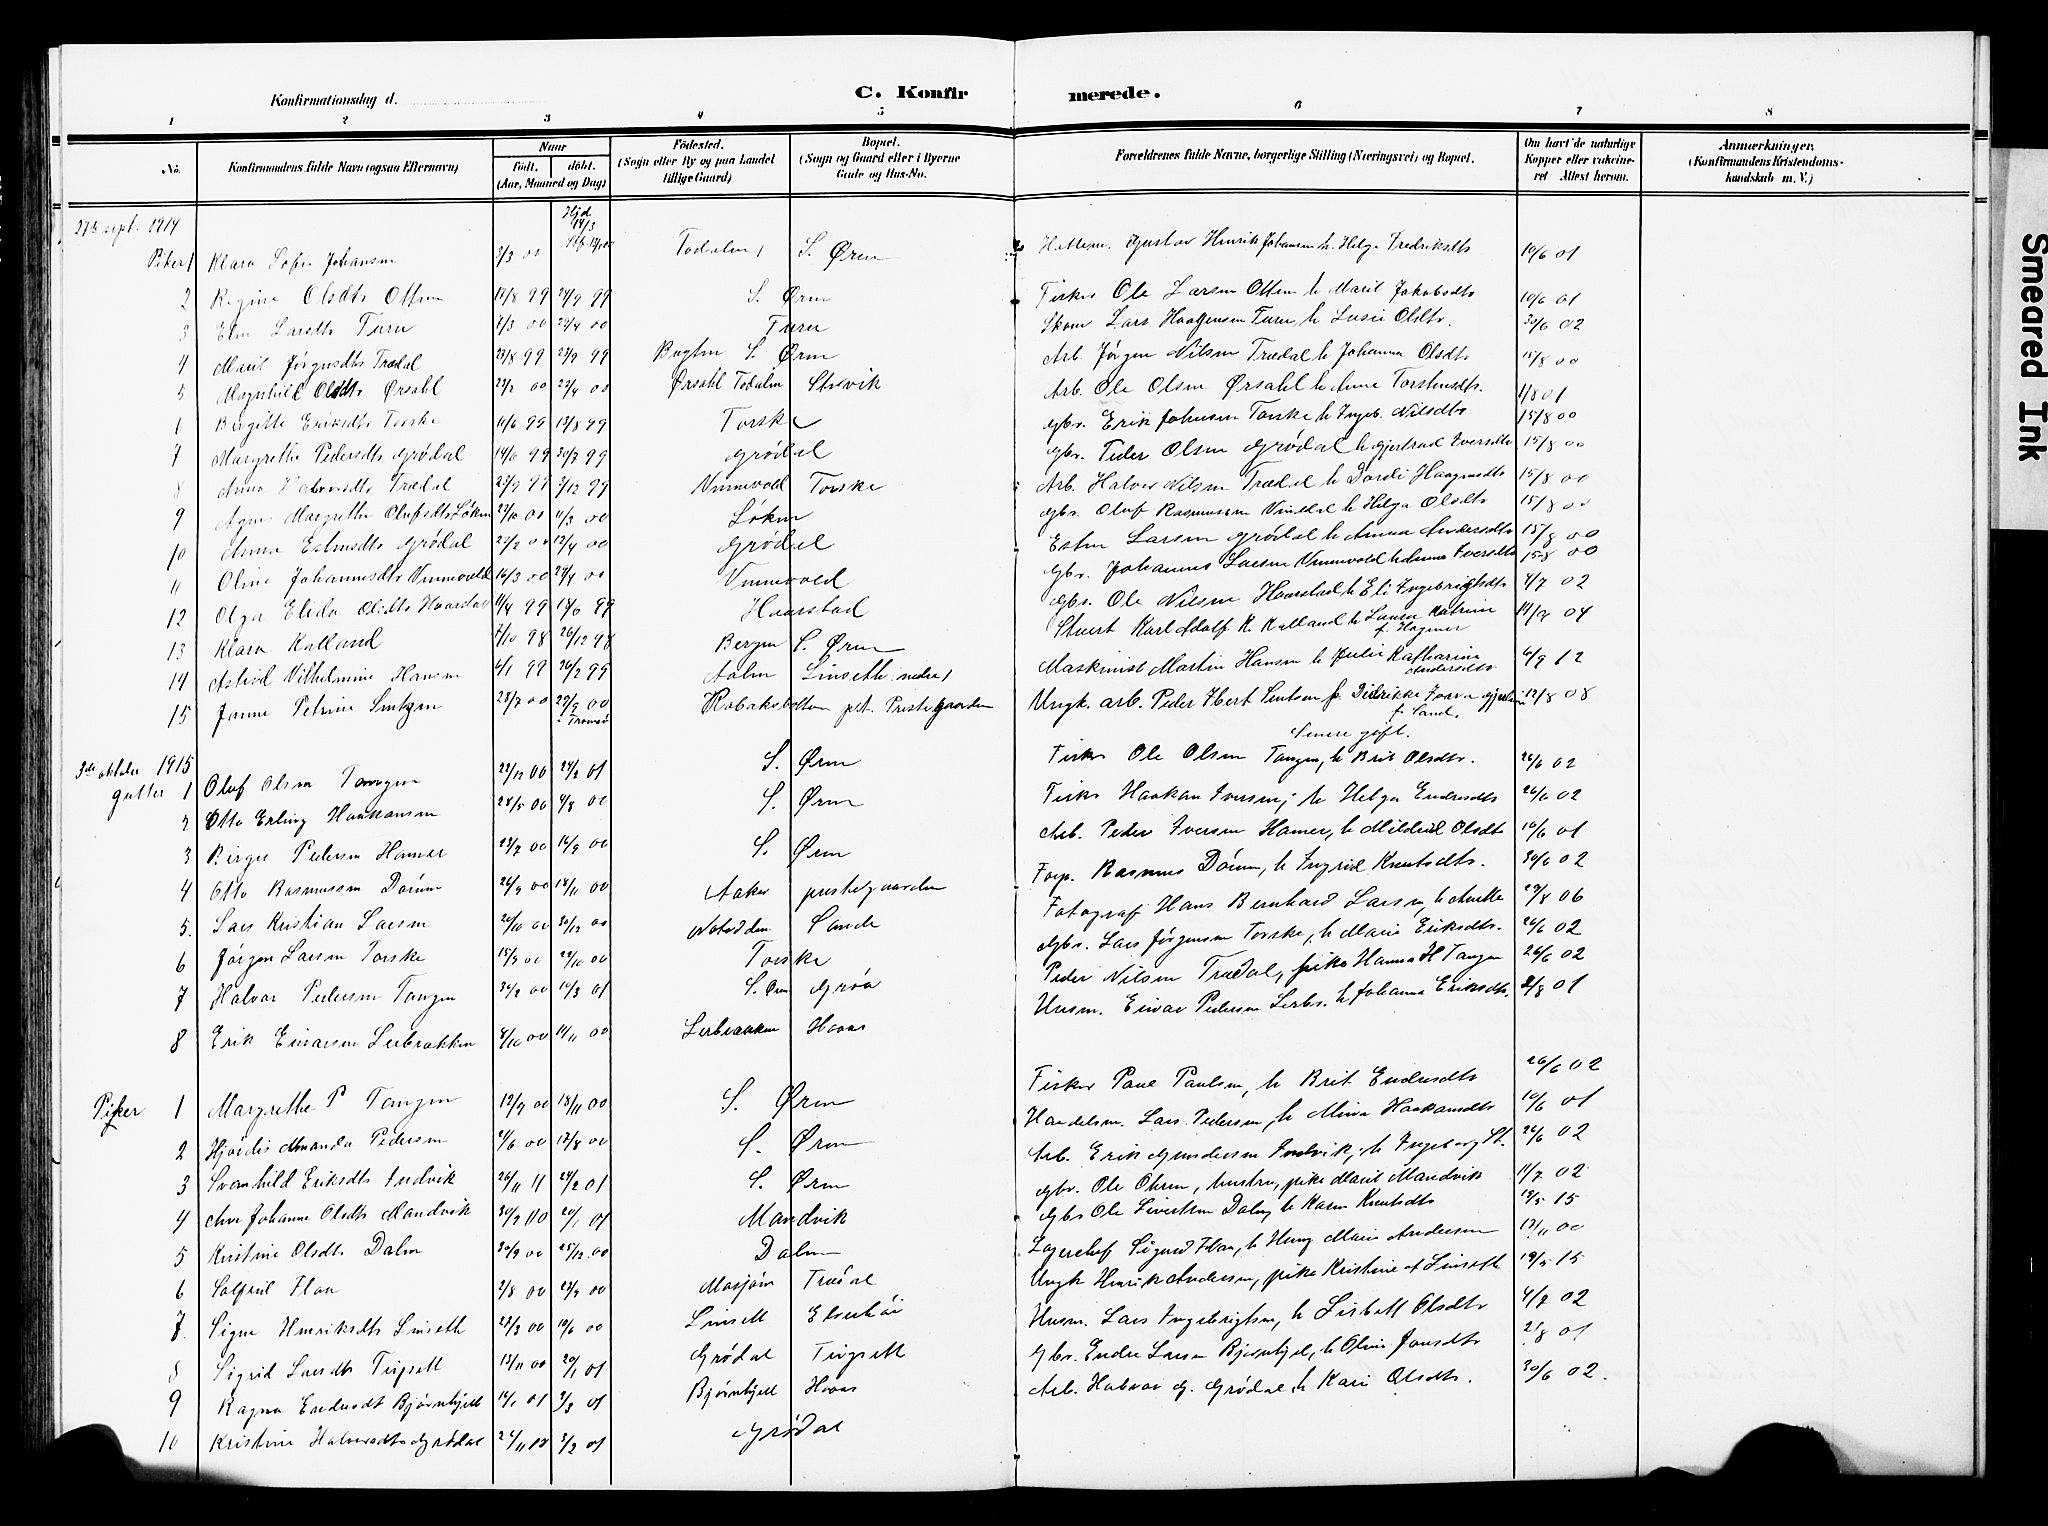 Konfirmationsdag d.
C. Konfirmerede.
1 2 3 4 5 6 7 8
No. Konfirmandens fulde Navn (ogsaa Efternavn) Naar Født. døbt. (Aar, Maaned og Dag) Fødested. (Sogn eller By og paa Landet tillige Gaard) Bopæl. (Sogn og Gaard eller i Byerne Gade og Hus-No. Forældrenes fulde Navne, borgerlige Stilling (Næringsvei) og Bopæl. Om havt de naturlige Kopper eller vakcineret Attest herom. Anmærkninger. (Konfirmandens Kristendomskundskab m. V.)
27de sept. 1914
Piker 1 Klara Sofie Johansen 2/3 00 Todalen S. Øren Gustav Henrik Johansen h. Helga Fredriksdtr 10/6 01
2 Regine Olsdtr Ottem 12/8 99 24/9 99 S. Øren Fisker Ole Larsen Ottem h Marit Jakobsdtr 10/6 01
3 Larsdtr Furu 7/3 00 29/4 00 Furu Skom Lars Furu, h Olsdtr. 30/6 02
4 Marit Jørgensdtr Trædal 23/8 99 23/9 99 S. Øren Arb. Jørgen Nilsen Trædal h Johanna Olsdtr 15/8 00
5 Magnhild Olsdtr Ørsahl 22/2 00 22/4 00 Ørsahl Todalen Arb. Ole Olsen Ørsahl h Anne Torstensdtr. 1/8 01
1 Birgitte Eriksdtr Torske 11/6 99 13/8 99 Torske gbr. Erik Johnsen Torske h Ingeb. Nilsdtr 15/8 00
7 Margrethe Pedersdtr Grødal 14/6 99 30/7 99 Grødal gbr. Peder Olsen Grødal h Gjertrud Iversdtr 15/8 00
8 Anna Halvorsdtr Trædal 23/9 99 3/12 99 Vinnevold Torske Arb. Halvor Nilsen Trædal h Dordi Haagensdtr 15/8 00
9 Agnes Margrethe Olufsdtr Løken 27/10 00 11/3 00 Løken gbr. Oluf Rasmussen h Helga Olsdtr 15/8 00
10 Anna Estensdtr Grødal 22/2 00 12/4 00 Grødal Esten Larsen Grødal h Anna Andersdtr 15/8 00
11 Oline Johannesdtr Vinnevold 16/3 00 29/4 00 Vinnevold gbr. Johannes Larsen Vinnevold h Anna Iversdtr 15-8 00
12 Olga Elida Olsdtr Haarstad 11/4 99 18/6 99 Haarstad gbr. Ole Nilsen Haarstad h Eli Ingebrigtsdtr 4/7 02
13 Klara Kalland 7/10 98 26/12 98 Bergen S. Øren Stuert Karl Adolf K. Kalland h Laura Katrine f. Hagmer 04
14 Astrid Vilhelmine Hansen 6/1 99 26/2 99 Aalen Linseth nedre Maskinist Martin Hansen h Julie Katharina Andersdtr 6/9 12
15 Janna Petrine 23/7 00 29/9 00 i Tromsø Prestegaarden Ungk. arb. Peder p. Didrikke f. Sand. 12/8 08
Senere gift.
3de oktober 1915
Gutter 1 Oluf Olsen Tangen 22/12 00 24/2 01 S. Øren Fisker Ole Olsen Tangen, h Brit Olsdtr. 26/6 02
2 Otto Erling Haakansen 28/5 00 4/8 00 S. Øren Fisker Haakan Iversen, h Helga Endresdtr 26/6 02
3 Birger Pedersen Hamer 23/7 00 16/9 00 S. Øren Arb. Peder Iversen Hamer, h Mildrid Olsdtr 10/6 01
4 Otto Rasmussen Dørum 26/9 00 14/11 00 Aaker prestegaarden Forp. Rasmus Dørum, h Ingrid Knutsdtr. 30/6 02
5. Lars Kristian Larsen 20/10 00 30/12 00 Notodden Sande Fotograf Hans Bernhard Larsen, h 29/8 06
6 Jørgen Larsen Torske 15/9 00 22/10 00 Torske Gbr. Lars Jørgensen Torske, h Marie Eriksdtr. 26/6 02
7 Halvar Pedersen Tangen 10/3 01 S. Øren Grøa Peder Nilsen Trædal, pike Hanna H Tangen 26/6 02
8 Erik Einarsen Lerbrakken 8/10 00 11/11 00 Lerbrakken Hoaas Husm. Einar Pedersen Lerbr. h Johanna Eriksdtr. 2/8 01
Piker 1 Margrethe P Tangen 12/9 00 18/11 00 S. Øren Fisker Paul Paulsen, h Brit Endresdtr 26/6 02
2 Hjørdis Amanda Pedersen 2/6 00 12/8 00 S. Øren Handelsm. Lars Pedersen, h Mina Haakansdtr 10/6 01
3 Svanhild Eriksdtr Indvik 26/11 11 24/2 01 S. Øren Arb. Erik Gundersen Indvik, h Ingeborg St. 26/6 02
4 Ane Johanne Olsdtr Mandvik 20/1 01 Mandvik gbr. Ole hustru, pike Marit Mandvik 11/7 02
5 Kristine Olsdtr. Dalen 30/9 00 25/12 00 Dalen Gbr Ole Sivertsen Dalen h Karen Knutsdtr 19/5 15
6 Solfrid Floan 2/8 00 23/9 00 Mosjøen Trædal Lagerchef Sigurd Floan, h Marie Andersen 13/11 00
7. Signe Henriksdtr Linseth 22/3 00 10/6 00 Linsett Elvehøi Ungk Henrik Andersen, pike Kristine at Linseth 19/5 15
8 Sigrid Larsdtr 13/11 00 20/1 01 Grødal Husm. Lars Ingebrigtsen, h Lisbett Olsdtr 4/7 02
9 Ragna Endresdt Bjørnhjell 14/1 01 3/3 01 Bjørnhjell Hoaas Gbr. Endre Larsen Bjørnhjel, h Oline Jonsdtr 2/8 01
10 Kristine Halvorsdtr Grødal 3/2 01 Grødal Arb. Halvor G. Grødal h Kari Olsdtr. 30/6 02.
Smeared Ink